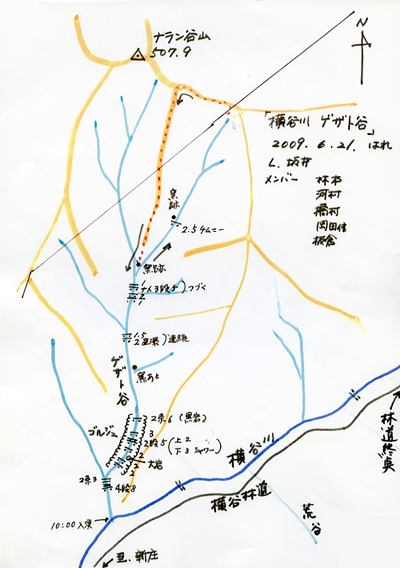 ナラン谷山
507.9
N
「横谷川 ゲザト谷」
2009. 6. 21. はれ
L. 坂井
メンバー 林本
河村
橋村
岡田信
板倉
窯跡
2.5チムニー
窯跡
ナメ3段5
つづく
1.5
2
連続
窯あと
ゲザト谷
ゴルジュ
2条6(黒岩)
3
2段5(上2
下3 シャワー)
2
2
大岩
2条3
4段8
10:00入渓
横谷川
横谷林道
林道終点
荒谷
至.新庄